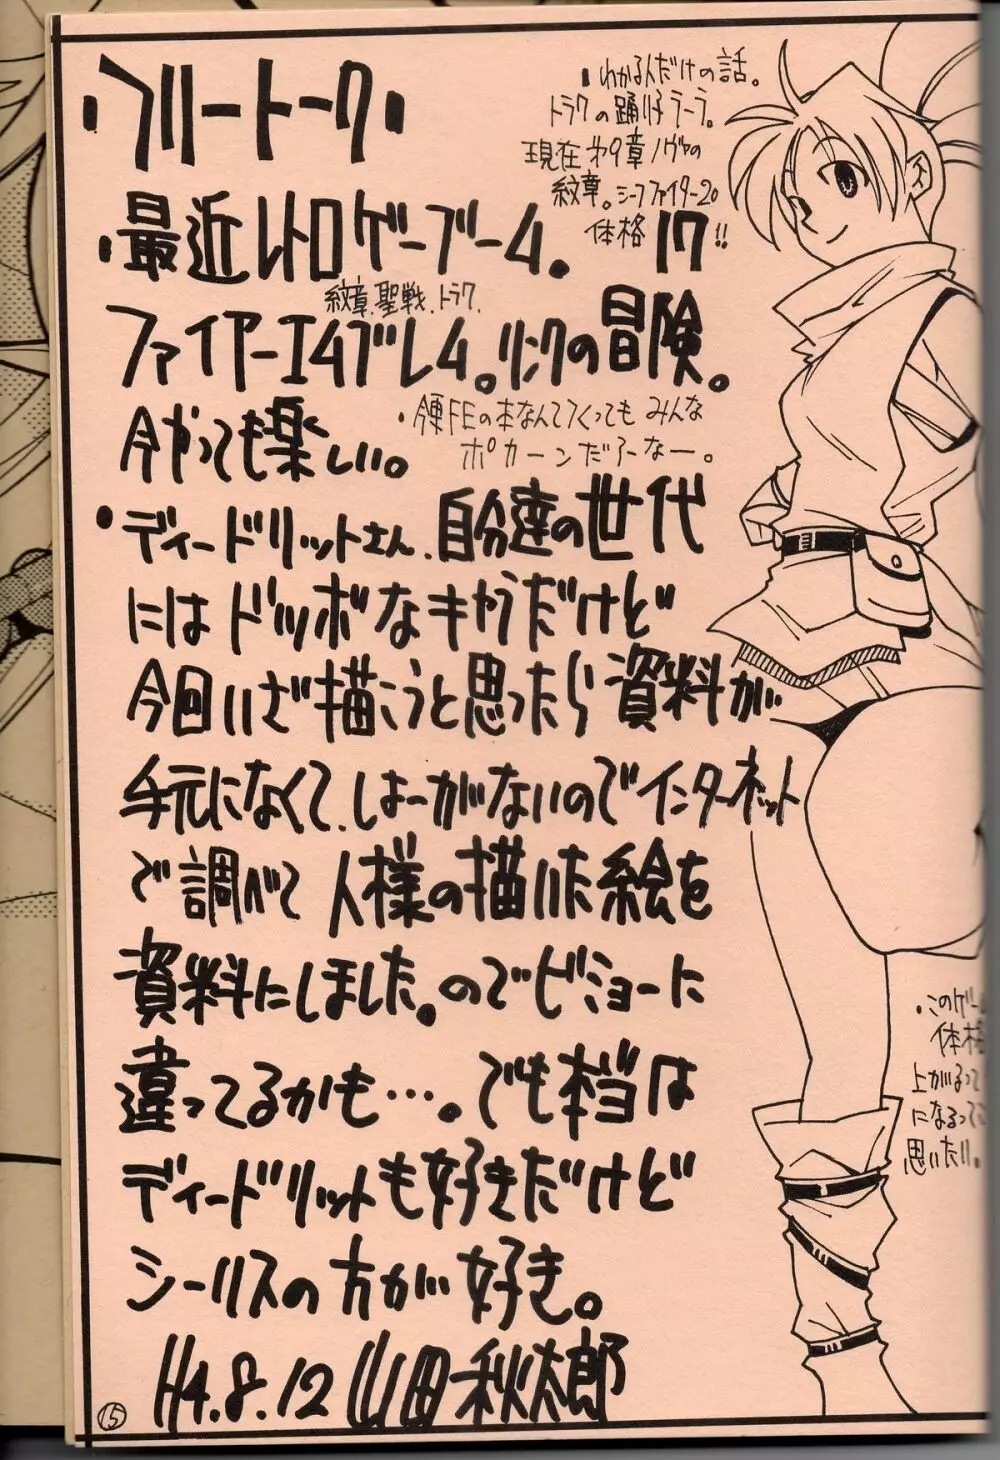 ・フリートーク・
・わかる人だけの話。
トラクの踊り子ラーラ。
現在 オ9章ノヴァの
紋章。シーフファイター20
体格 17!!
・最近レトロゲーブーム。
紋章.聖戦.トラク.
ファイアーエムブレム。リンクの冒険。
今やっても楽しい。
・今更FEの本なんてつくっても みんな
ポカーンだろーなー。
・ディードリットさん、自分達の世代
にはドツボなキャラだけど
今回いざ描こうと思ったら資料が
手元になくて、しょーがないのでインターネット
で調べて人様の描いた絵を
資料にしました。のでビミョーに
違ってるかも…。でも本当は
ディードリットも好きだけど
シーリスの方が好き。
H4.8.12 山田秋太郎
・このゲー
体格
上がるって
になるって
思いたい。
15